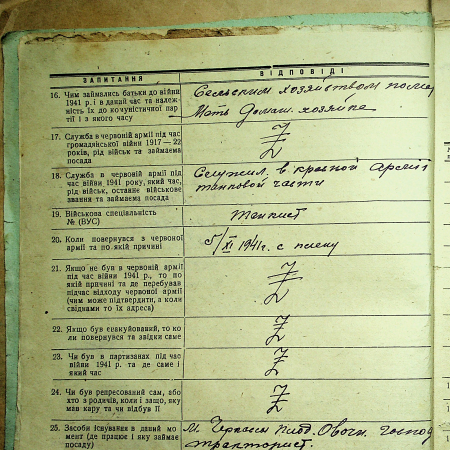 ЗАПИТАННЯ
ВІДПОВІДІ
16. Чим займались батьки до війни
1941 р. і в даний час та належ-
ність їх до комуністичної пар-
тії і з якого часу
Сельским хозяйством
Мать Домаш. хозяйка
17. Служба в червоній армії під час
громадянської війни 1917—22
років, рід військ та займаєма
посада
Z
18. Служба в червоній армії під
час війни 1941 року, який час,
рід військ, останнє військове
звання та займаєма посада
Служил в красной Армії
танковой части
19. Військова спеціальність
№ (ВУС)
Танкист
20. Коли повернувся в червоної
армії та по якій причині
5/XI 1941 г. с плену
21. Якщо не був в червоній армії
під час війни 1941 р., то по
якій причині та де перебував
підчас відходу червоної армії
(чим може підтвердити, а коли
свідками то їх адреса)
Z
22. Якщо був евакуйований, то ко-
ли повернувся та звідки саме
Z
23. Чи був в партизанах під час
війни 1941 р. та де саме і
який час
Z
24. Чи був репресований сам, або
хто з родичів, коли і защо, яку
мав кару та чи відбув її
Z
25. Засоби існування в даний мо-
мент (де працює і яку займає
посаду)
М. Черкассы Плод. Овочн. господ
тракторист.